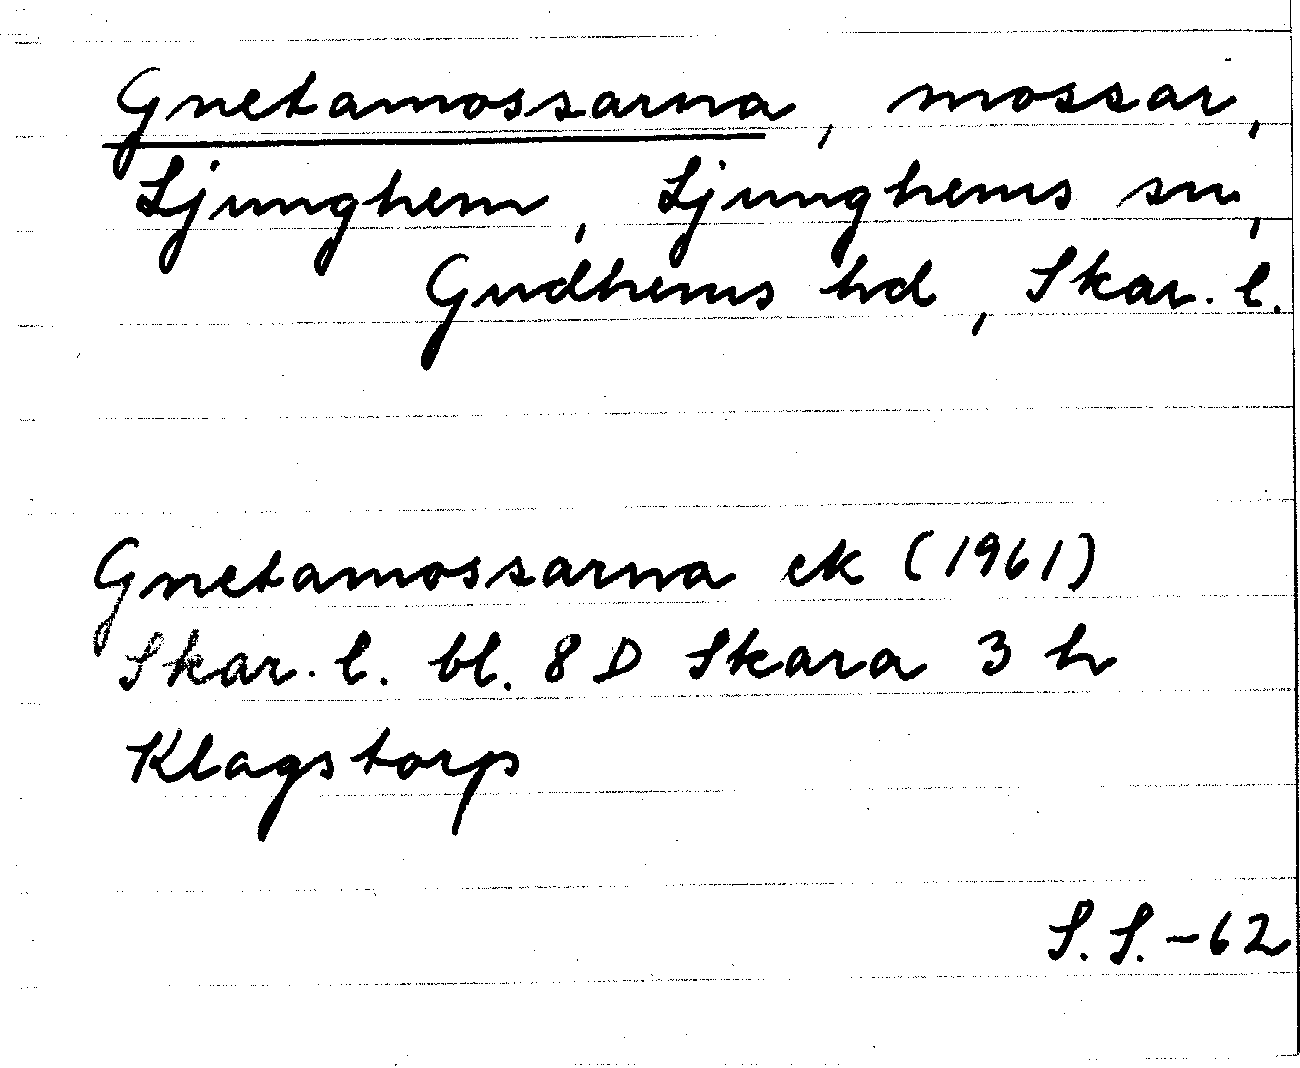 Gnetamossarna, mossar,
Ljunghem, Ljunghems sn,
Gudhems hd, Skar. l.
Gnetamossarna ek (1961)
Skar. l. bl. 8 D Skara 3 h
Klagstorp
S.S. -62